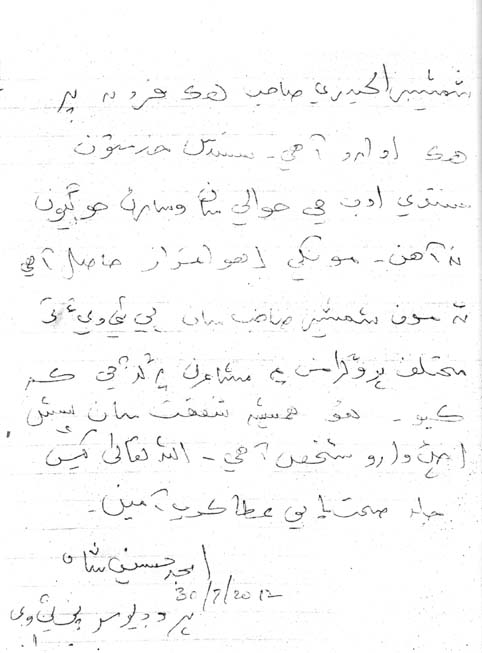 شمشير الحيدري صاحب هڪ فرد نہ پر
هڪ ادارو آهي۔ سندس خدمتون
سنڌي ادب جي حوالي سان وسارڻ جوڳيون
نہ آهن۔ مونکي اهو اعزاز حاصل آهي
تہ مون شمشير صاحب سان پي ٽي وي تي
مختلف پروگرامن ۽ مشاعرن ۾ گڏجي ڪم
ڪيو۔ هو هميشہ شفقت سان پيش
اچڻ وارو شخص آهي۔ الله تعاليٰ کيس
جلد صحت يابي عطا ڪري آمين۔
امجد حسين شاھ
30/7/2012
پروڊيوسر پي ٽي وي